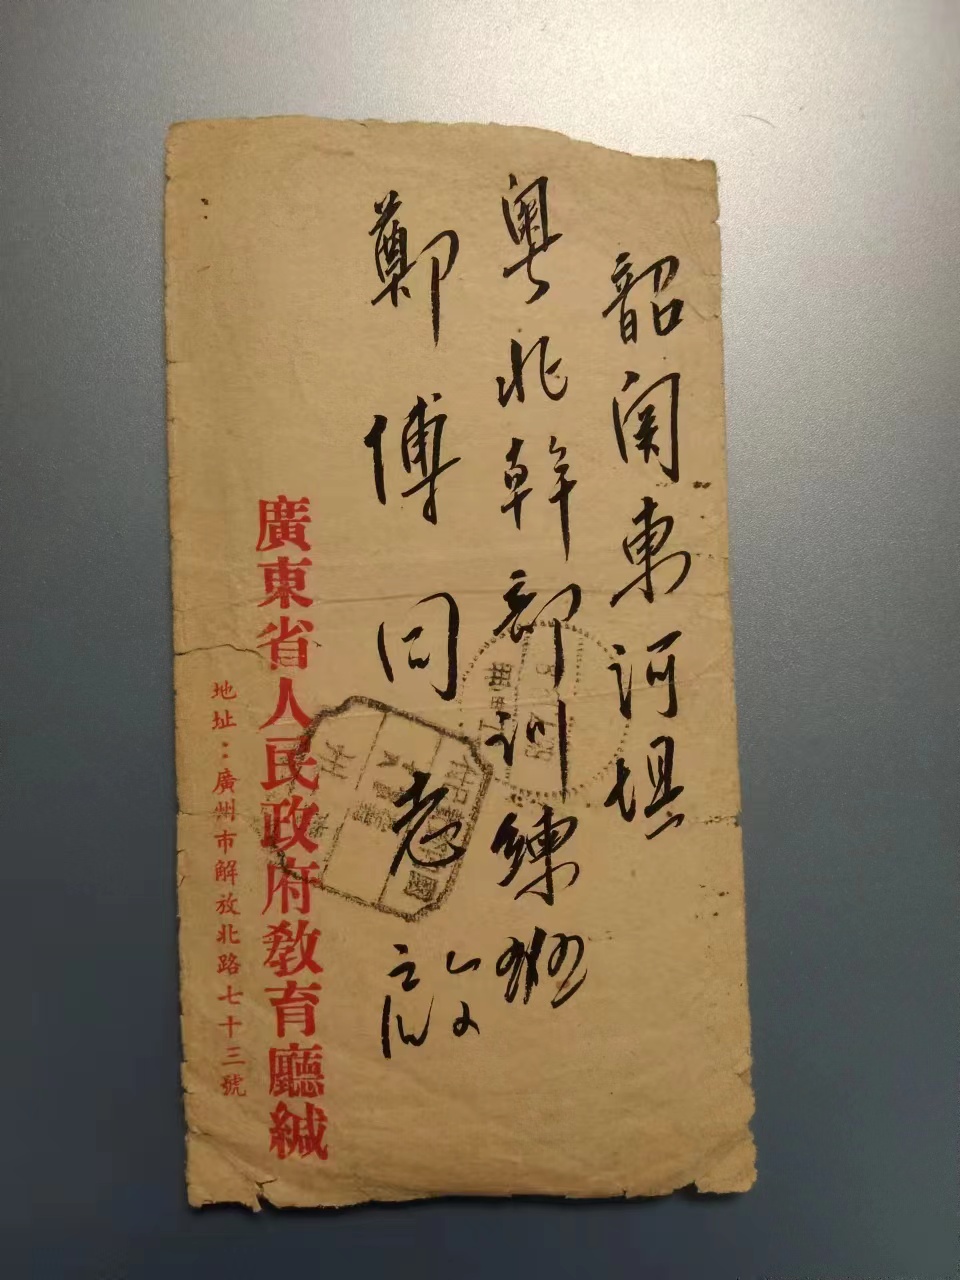 韶関東河壩
粤北幹部訓練班
鄭博同志 啟
廣東省人民政府教育廳緘
地址：廣州市解放北路七十三號